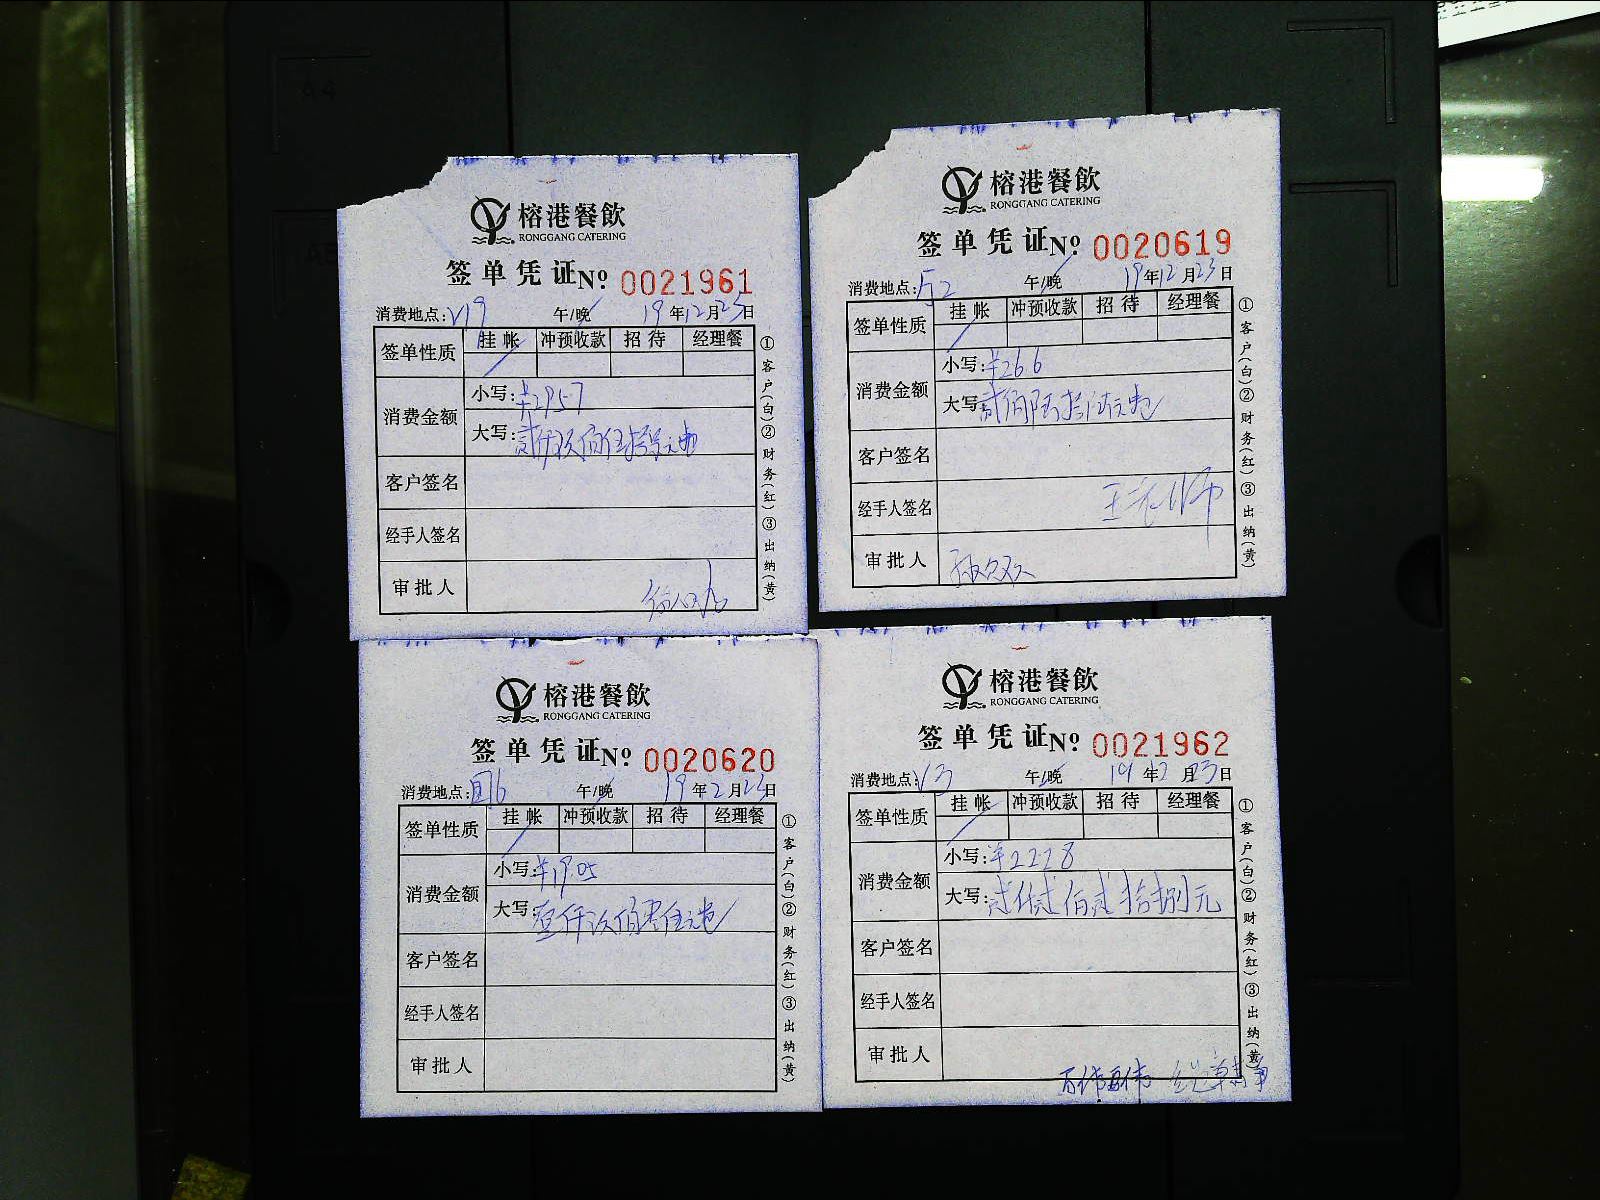 榕港餐飲
RONGGANG CATERING
签单凭证 No 0021961
消费地点: V19 午/晚 19年12月23日
签单性质 挂帐 冲预收款 招待 经理餐
消费金额
小写: ¥2957
大写: 贰仟玖佰伍拾柒元
客户签名
经手人签名
审批人
①客户(白)②财务(红)③出纳(黄)
榕港餐飲
RONGGANG CATERING
签单凭证 No 0020619
消费地点: 午/晚 19年12月23日
签单性质 挂帐 冲预收款 招待 经理餐
消费金额
小写: ¥266
大写: 贰佰陆拾陆元
客户签名
经手人签名
审批人
①客户(白)②财务(红)③出纳(黄)
榕港餐飲
RONGGANG CATERING
签单凭证 No 0020620
消费地点: 午/晚 19年12月23日
签单性质 挂帐 冲预收款 招待 经理餐
消费金额
小写: ¥1905
大写: 壹仟玖佰零伍元
客户签名
经手人签名
审批人
①客户(白)②财务(红)③出纳(黄)
榕港餐飲
RONGGANG CATERING
签单凭证 No 0021962
消费地点: V3 午/晚 19年12月23日
签单性质 挂帐 冲预收款 招待 经理餐
消费金额
小写: ¥2228
大写: 贰仟贰佰贰拾捌元
客户签名
经手人签名
审批人
①客户(白)②财务(红)③出纳(黄)